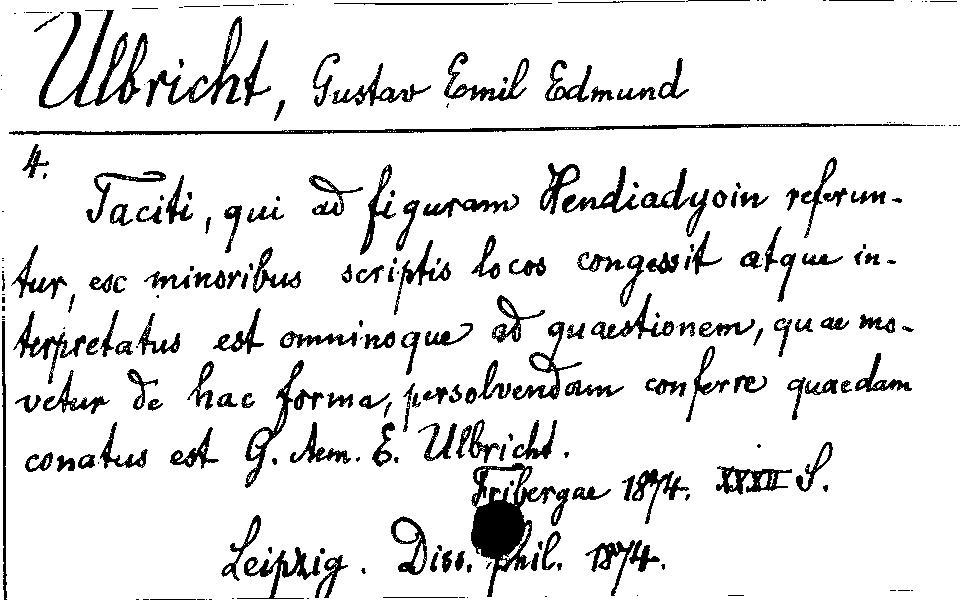 Ulbricht, Gustav Emil Edmund
4.
Taciti, qui ad figuram Hendiadyoin referun-
tur, ex minoribus scriptis locos congessit atque in-
terpretatus est omninoque ad quaestionem, quae mo-
vetur de hac forma, persolvendam conferre quaedam
conatus est G. Aem. E. Ulbricht.
Fribergae 1874. XXXII S.
Leipzig. Diss. phil. 1874.